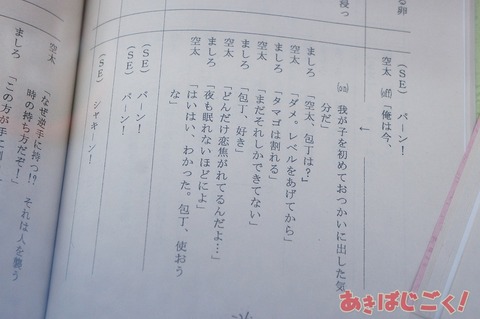 る卵
浸っ
（SE） パーン！
空太 (off)「俺は今、
←
(on) 我が子を初めておつかいに出した気
分だ」
ましろ 「空太、包丁は？」
空太 「ダメ。レベルをあげてから」
ましろ 「タマゴは割れる」
空太 「まだそれしかできてない」
ましろ 「包丁、好き」
空太 「どんだけ恋焦がれてるんだよ…」
ましろ 「夜も眠れないほどによ」
空太 「はいはい、わかった。包丁、使おう
な」
（SE） パーン！
（SE） パーン！
（SE） シャキーン！
空太 「なぜ逆手に持つ!? それは人を襲う
時の持ち方だぞ！」
ましろ 「この方が手に
あきばじごく！